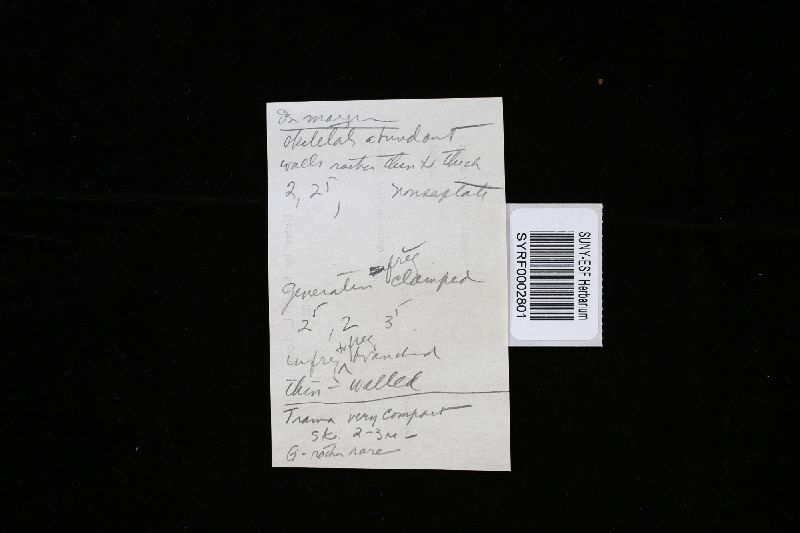 In margin
skeletals abundant
walls rather thin to thick
2, 2⁵, nonseptate
freq
generative clamped
2⁵, 2 3⁵
infreq to freq branched
thin-walled
Trama very compact
Sk. 2-3µ
G-rather rare
SUNY-ESF Herbarium
SYRF0002801